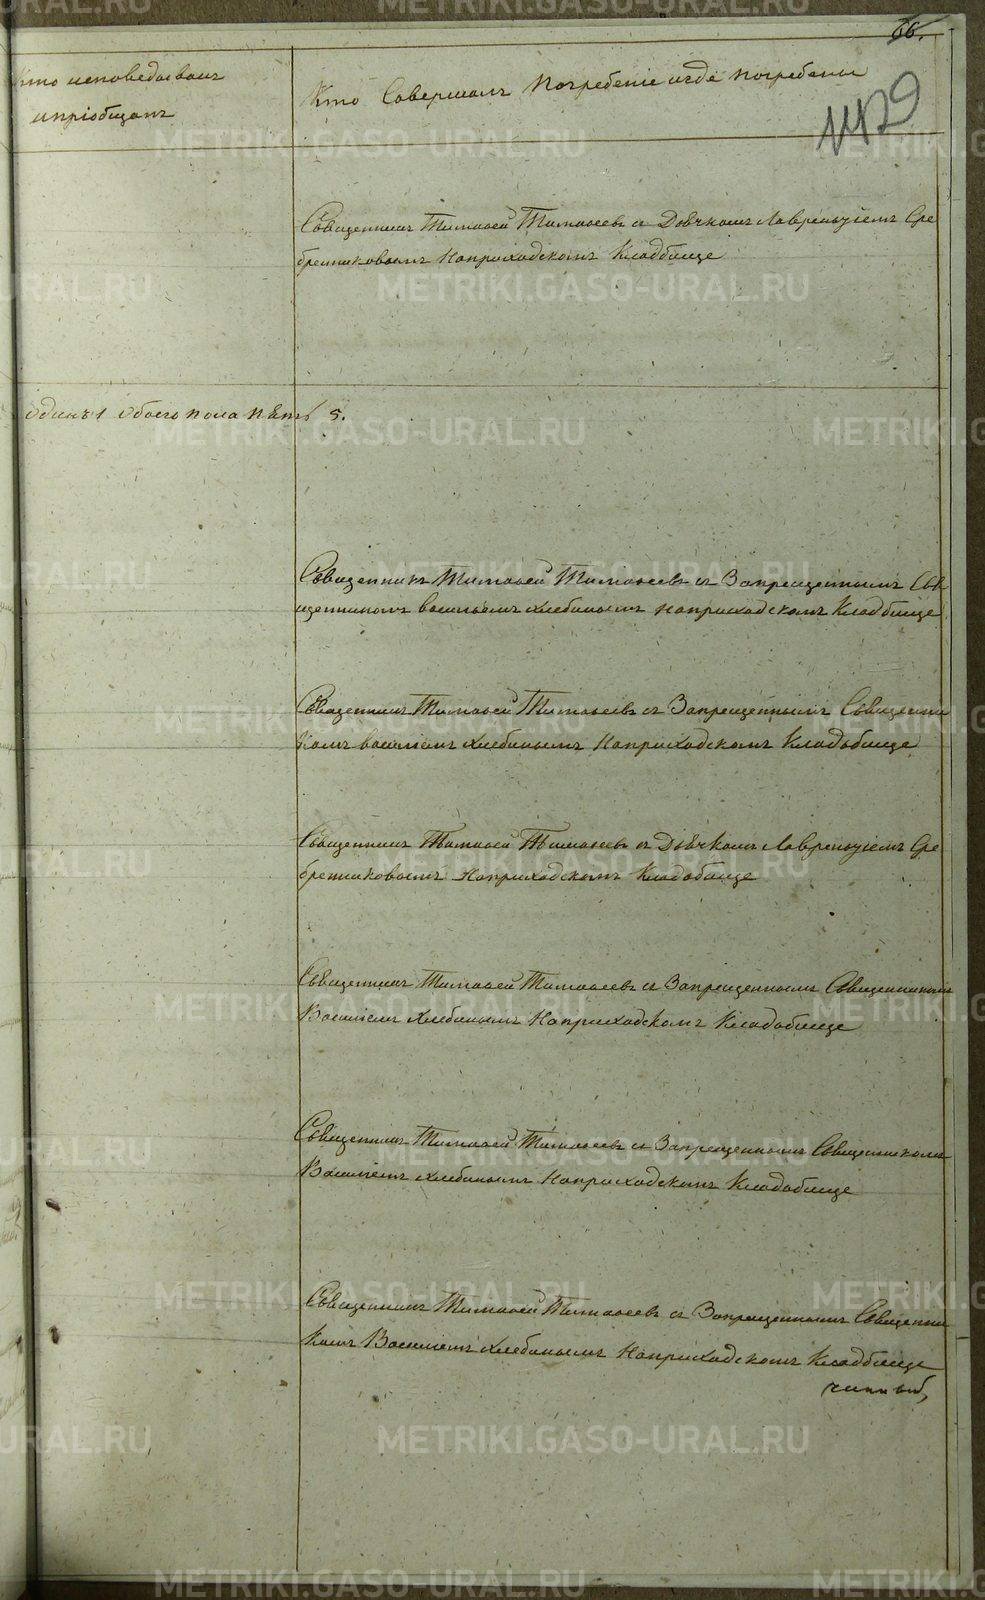 66.
1429
Кто исповедывалъ
и пріобщалъ
Кто Совершалъ Погребеніе и гдѣ погребены
Священникъ Тимофей Тимофеевъ съ Дьячкомъ Лаврентіемъ Сре
бренниковымъ На приходскомъ Кладбище
одинъ 1 обоего пола пять 5.
Священникъ Тимофей Тимофеевъ съ Запрещеннымъ Свя
щенникомъ Васильемъ Хлебинымъ на приходскомъ Кладбище
Священникъ Тимофей Тимофеевъ съ Запрещеннымъ Священни
комъ Васильемъ Хлебинымъ На приходскомъ Кладбище
Священникъ Тимофей Тимофеевъ съ Дьячкомъ Лаврентіемъ Сре
бренниковымъ На приходскомъ Кладбище
Священникъ Тимофей Тимофеевъ съ Запрещеннымъ Священникомъ
Василіемъ Хлебинымъ На приходскомъ Кладбище
Священникъ Тимофей Тимофеевъ съ Запрещеннымъ Священникомъ
Василіемъ Хлебинымъ На приходскомъ Кладбище
Священникъ Тимофей Тимофеевъ съ Запрещеннымъ Священни
комъ Василіемъ Хлебинымъ На приходскомъ Кладбище
METRIKI.GASO-URAL.RU